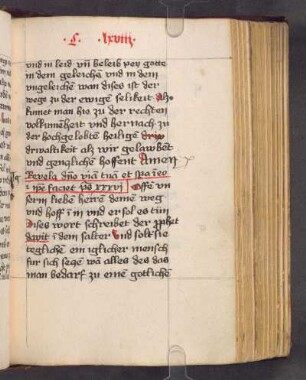 C lxviii
vnd in leid vn̄ beleib pey gotte
in dem geleichē vnd in dem
vngeleichē wan dises ist der
weg zu der ewigē selikeit Also
kumet man hie zu der rechten
volkumēheit vnd hernach zu
der hochgelobtē heiligē driv
driualtikeit als wir gelawbēt
vnd genczliche hoffent Amen
Revela dn̄o viā tuā et spa ī eo
et ip̄e faciet ps xxxvj Offē vn
serm liebē herrē deinē weg
vnd hoff in in vnd er sol es tun
Dises wort schreibet der ꝓphet
dauit ī dem salter vnd solt sie
tegliche ein iglicher mensch
fur sich seczē wā alles des das
man bedarf zu einē gotlichē